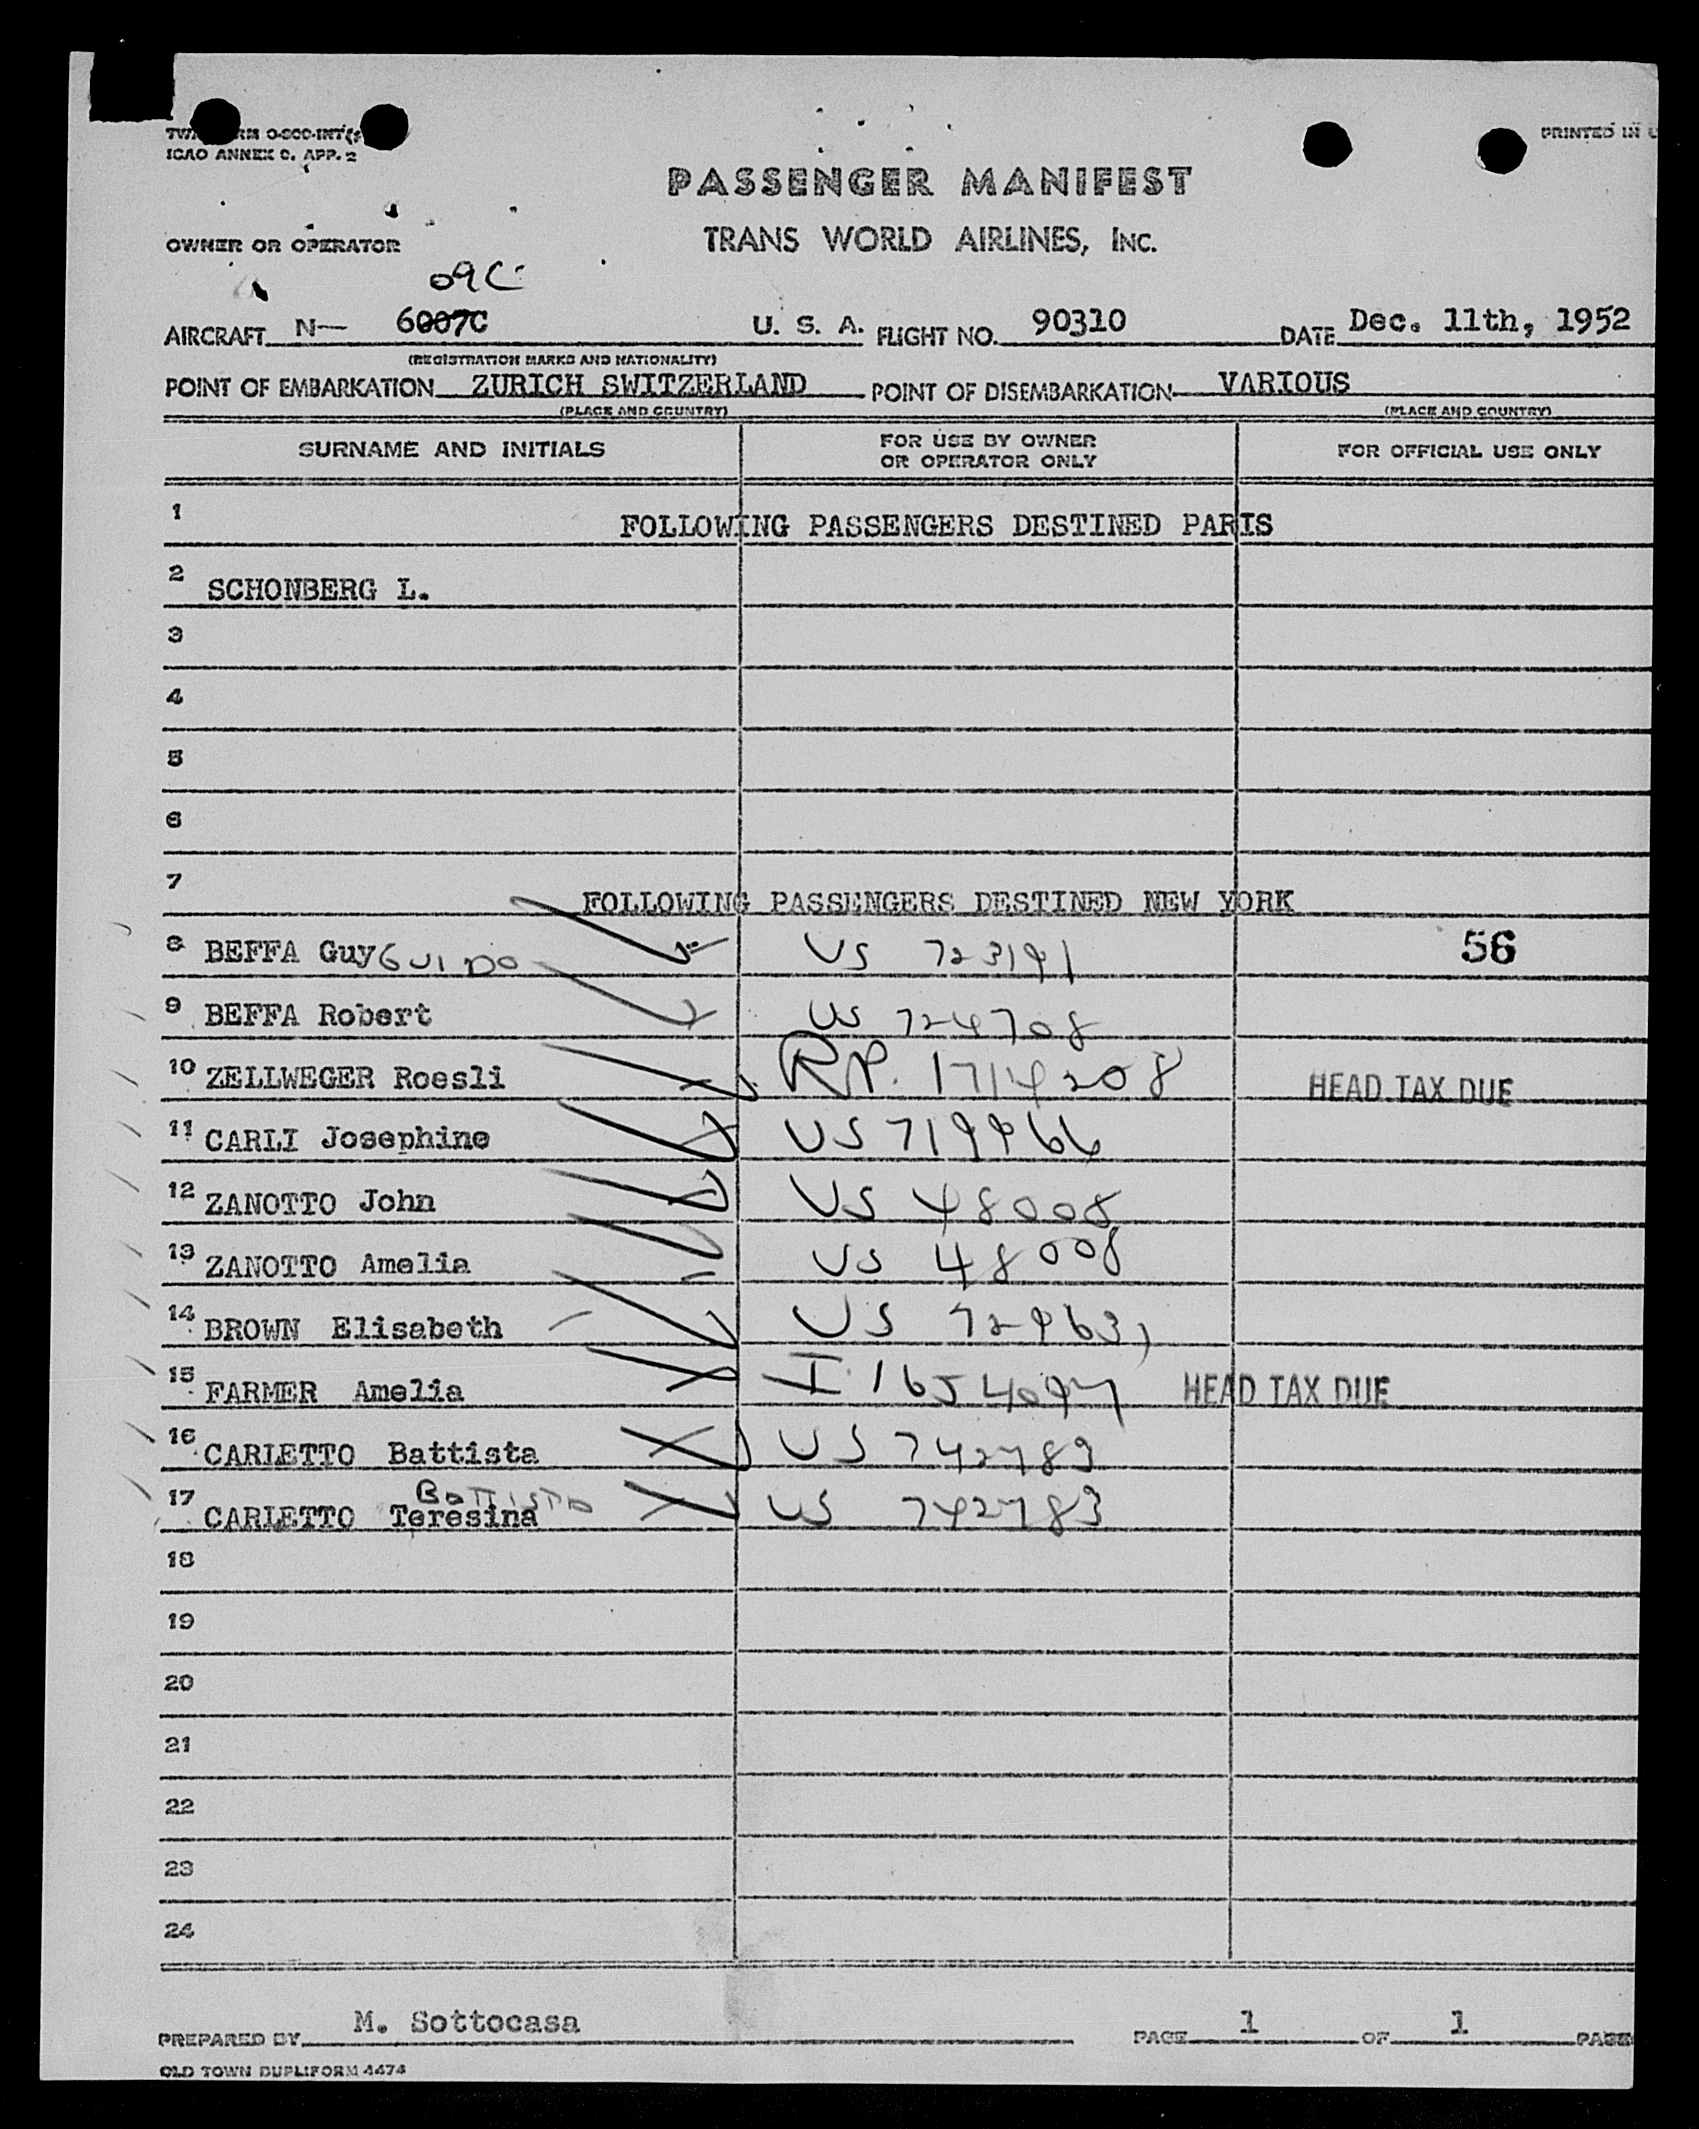 ICAO ANNEX 9, APP. 2
PRINTED IN
PASSENGER MANIFEST
OWNER OR OPERATOR
TRANS WORLD AIRLINES, INC.
09C
AIRCRAFT N— 6007C U. S. A. FLIGHT NO. 90310 DATE Dec. 11th, 1952
(REGISTRATION MARKS AND NATIONALITY)
POINT OF EMBARKATION ZURICH SWITZERLAND POINT OF DISEMBARKATION VARIOUS
(PLACE AND COUNTRY) (PLACE AND COUNTRY)
SURNAME AND INITIALS FOR USE BY OWNER OR OPERATOR ONLY FOR OFFICIAL USE ONLY
1 FOLLOWING PASSENGERS DESTINED PARIS
2 SCHONBERG L.
3
4
5
6
7 FOLLOWING PASSENGERS DESTINED NEW YORK
8 BEFFA Guy GUIDO US 723191 56
9 BEFFA Robert US 724708
10 ZELLWEGER Roesli RP. 1714208 HEAD TAX DUE
11 CARLI Josephine US 719966
12 ZANOTTO John US 48008
13 ZANOTTO Amelia US 48008
14 BROWN Elisabeth US 729631
15 FARMER Amelia I 1654097 HEAD TAX DUE
16 CARLETTO Battista US 742783
BATTISTA
17 CARLETTO Teresina US 742783
18
19
20
21
22
23
24
PREPARED BY M. Sottocasa PAGE 1 OF 1 PAGE
OLD TOWN DUPLIFORM 4474